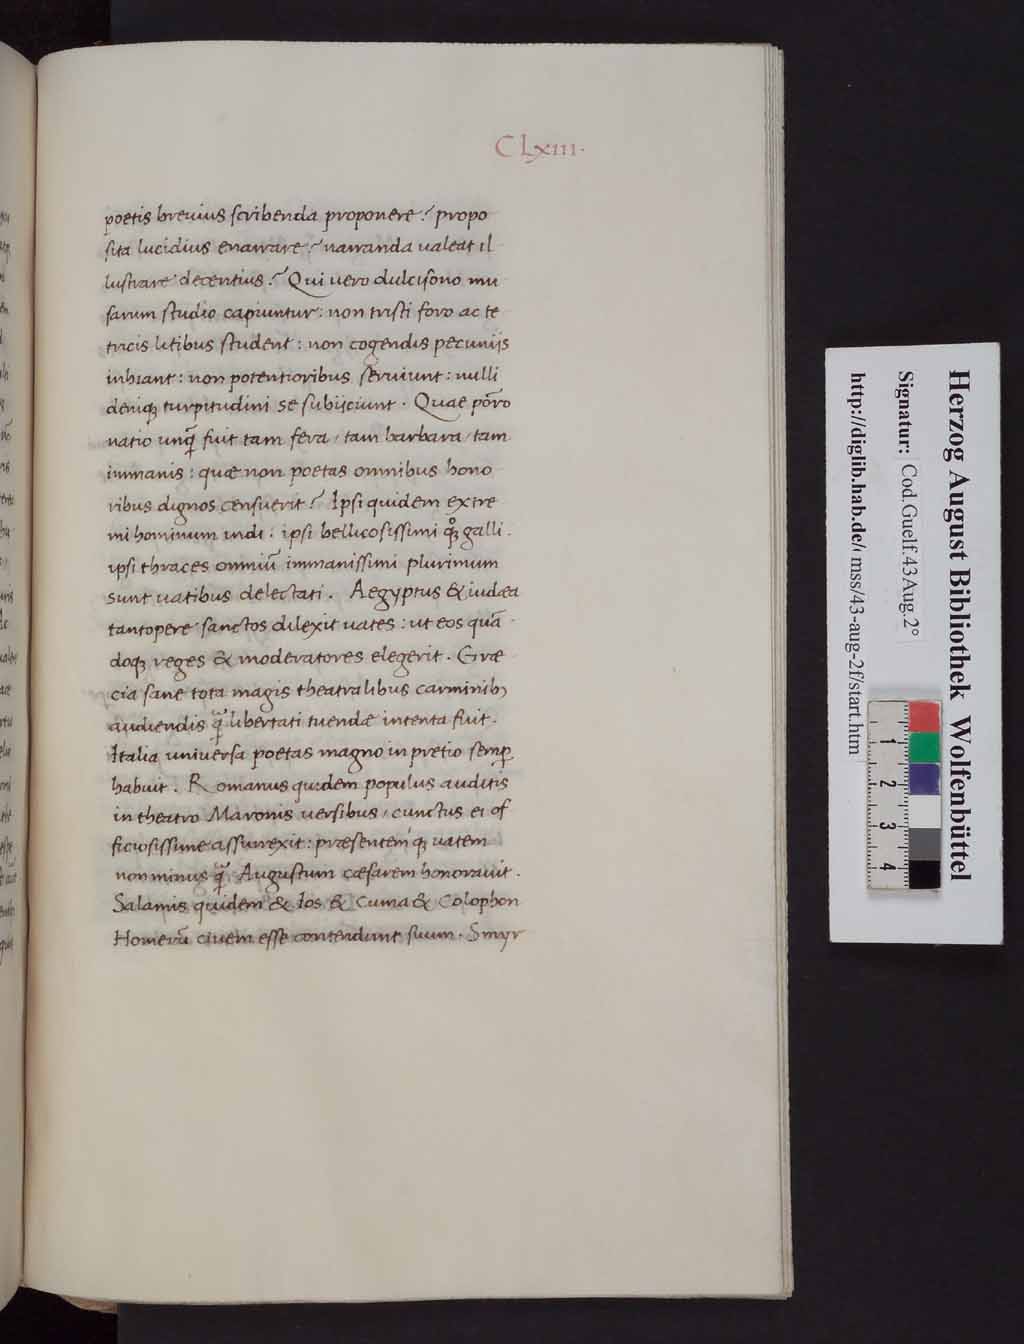 CLxiii·
poetis breuius scribenda proponere? propo
sita lucidius enarrare? narranda ualeat il
lustrare decentius? Qui uero dulcisono mu
sarum studio capiuntur: non tristi foro ac te
tricis litibus student: non cogendis pecuniis
inhiant: non potentioribus seruiunt: nulli
deniqꝫ turpitudini se subijciunt. Quae pōro
natio unq̄ fuit tam fera / tam barbara / tam
immanis: quæ non poetas omnibus hono
ribus dignos censuerit? Ipsi quidem extre
mi hominum indi: ipsi bellicosissimi qͦꝫ galli.
ipsi thraces omniū immanissimi plurimum
sunt uatibus delectati. Aegyptus & iudæa
tantopere sanctos dilexit uates: ut eos quā
doqꝫ reges & moderatores elegerit. Græ
cia sane tota magis theatralibus carminibꝫ
audiendis q̄ libertati tuendæ intenta fuit.
Italia uniuersa poetas magno in pretio semꝑ
habuit. Romanus quidem populus auditis
in theatro Maronis uersibus / cunctus ei of
ficiosissime assurrexit: præsentem qꝫ uatem
non minus q̄ Augustum cæsarem honorauit.
Salamis quidem & Ios & Cuma & Colophon
Homerū ciuem esse contendunt suum. Smyr
Herzog August Bibliothek Wolfenbüttel
Signatur: Cod.Guelf.43 Aug.2°
http://diglib.hab.de/ mss/43-aug-2f/start.htm
1
2
3
4